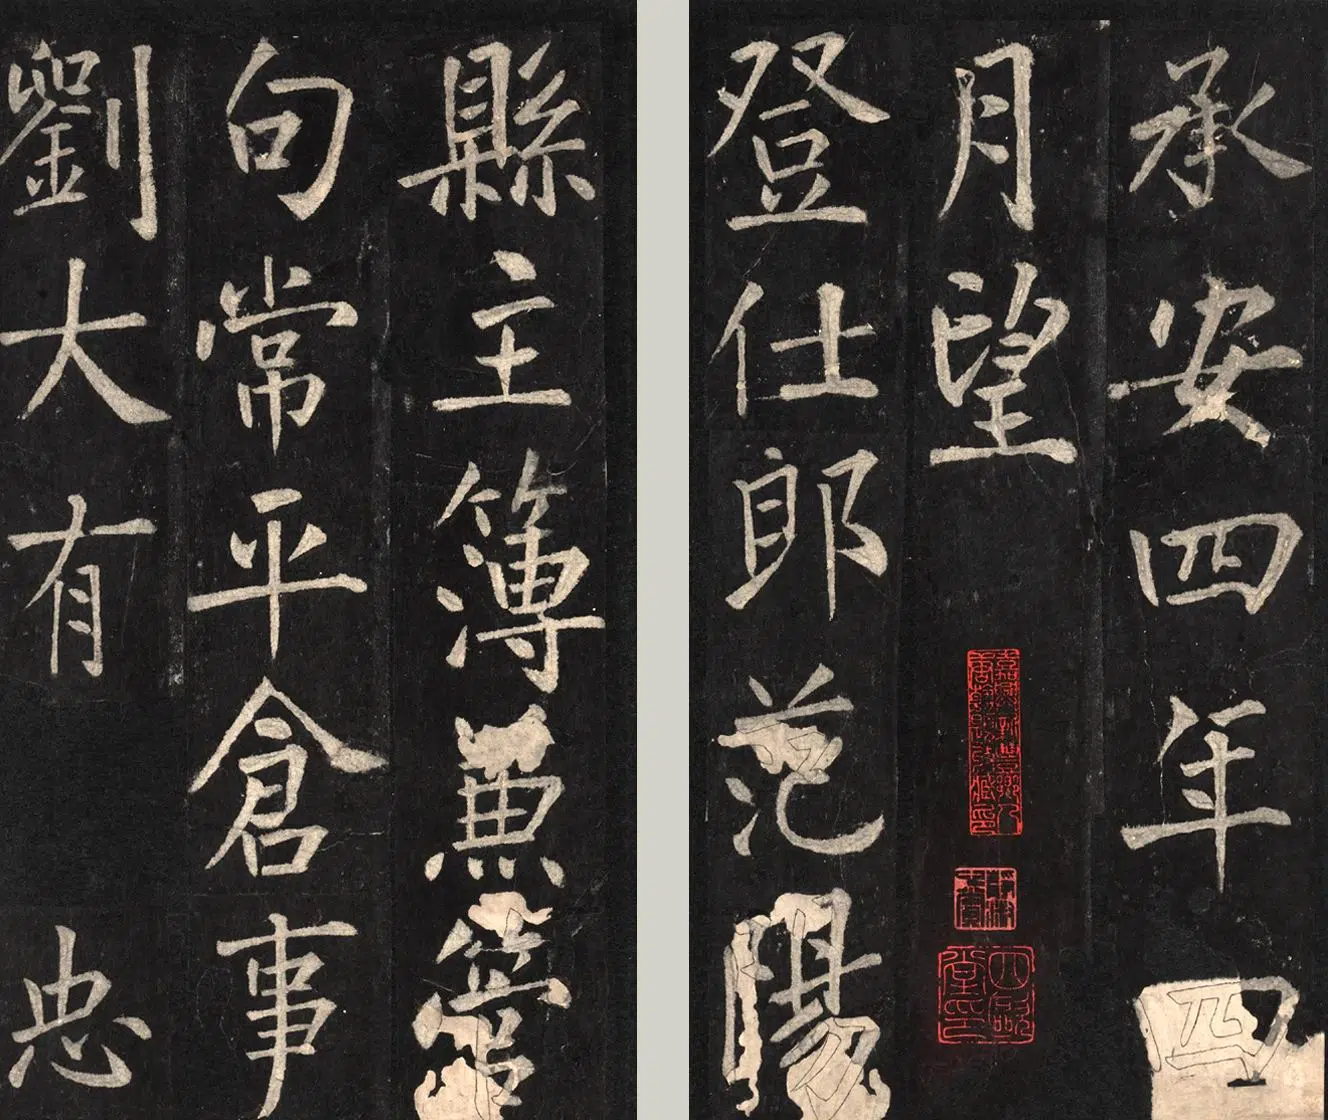 承安四年四
月望
登仕郎范陽
縣主簿兼管
句常平倉事
劉大有 忠